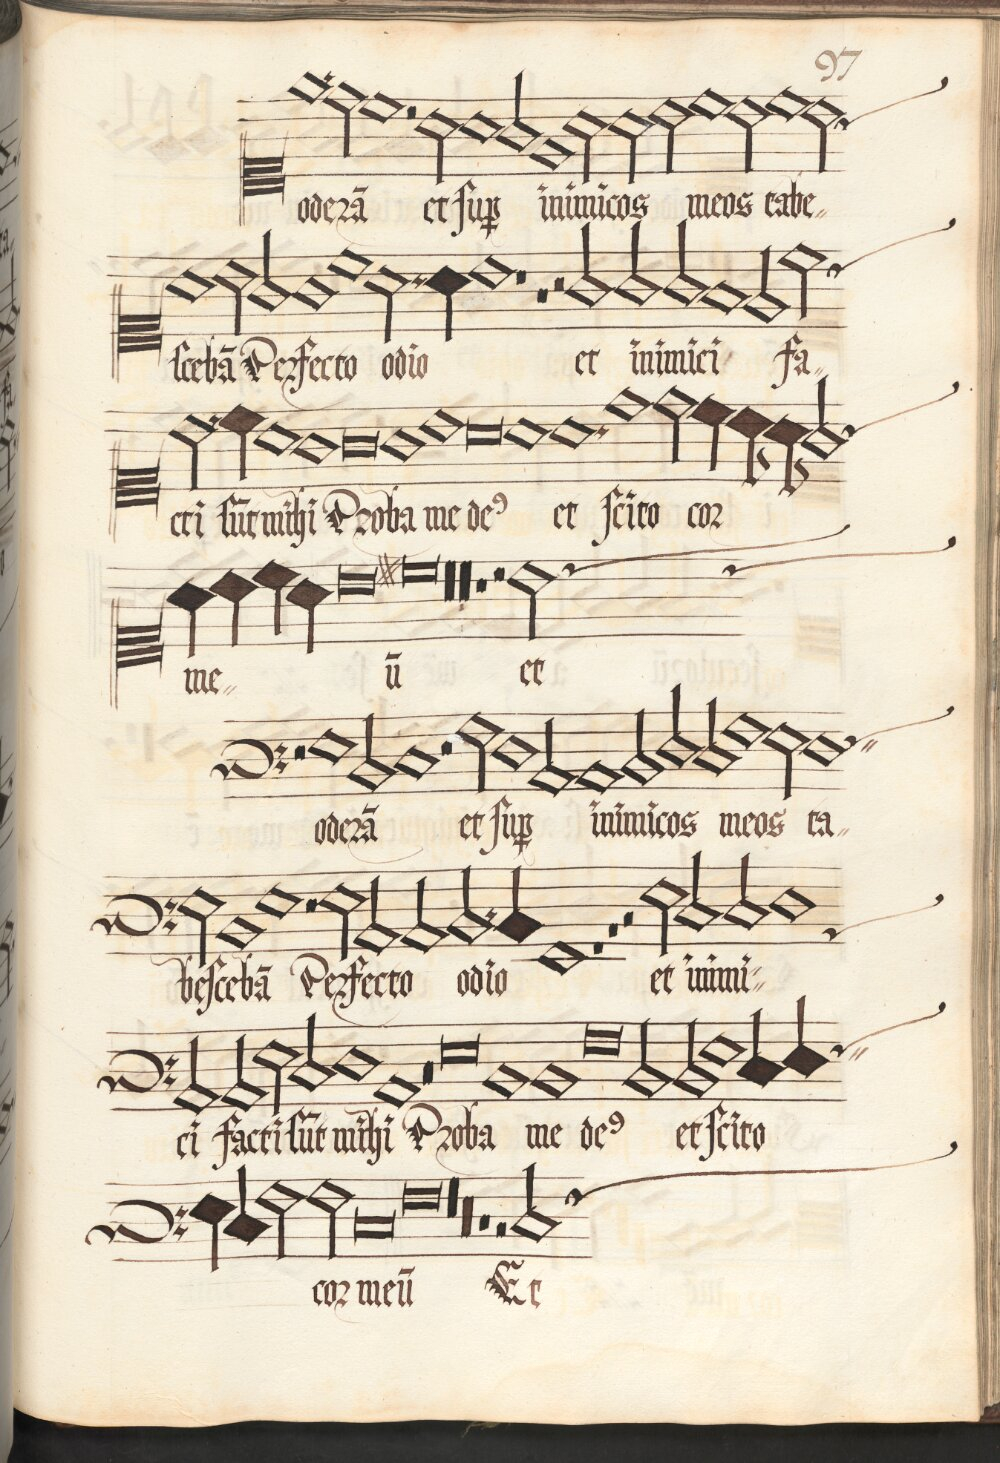 97
oderā et sup inimicos meos tabe〃
scebā Perfecto odio et inimici fa〃
cti sūt mihi Proba me de⁹ et scito cor
me〃 ū et
oderā et sup inimicos meos ta〃
bescebā Perfecto odio et inimi〃
ci facti sūt mihi Proba me de⁹ et scito
cor meū Et